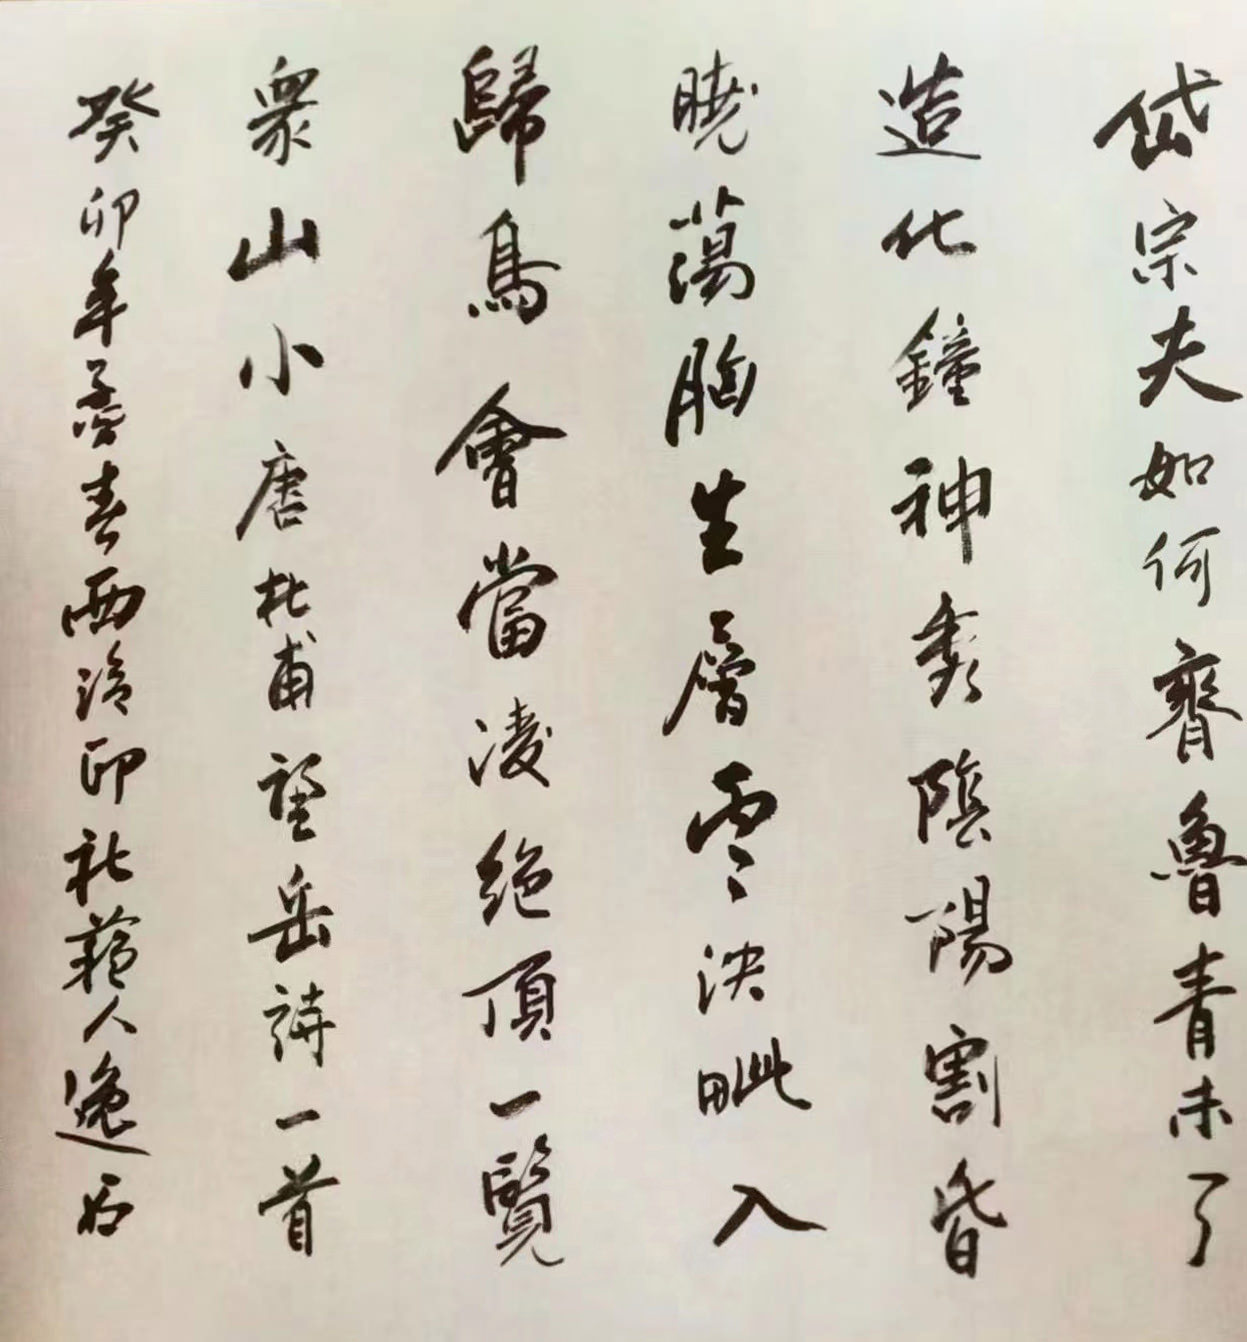 岱宗夫如何齊魯青未了
造化鐘神秀陰陽割昏
曉蕩胸生層雲決眦入
歸鳥會當凌絕頂一覽
衆山小唐杜甫望岳詩一首
癸卯年春西泠印社藝人逸石